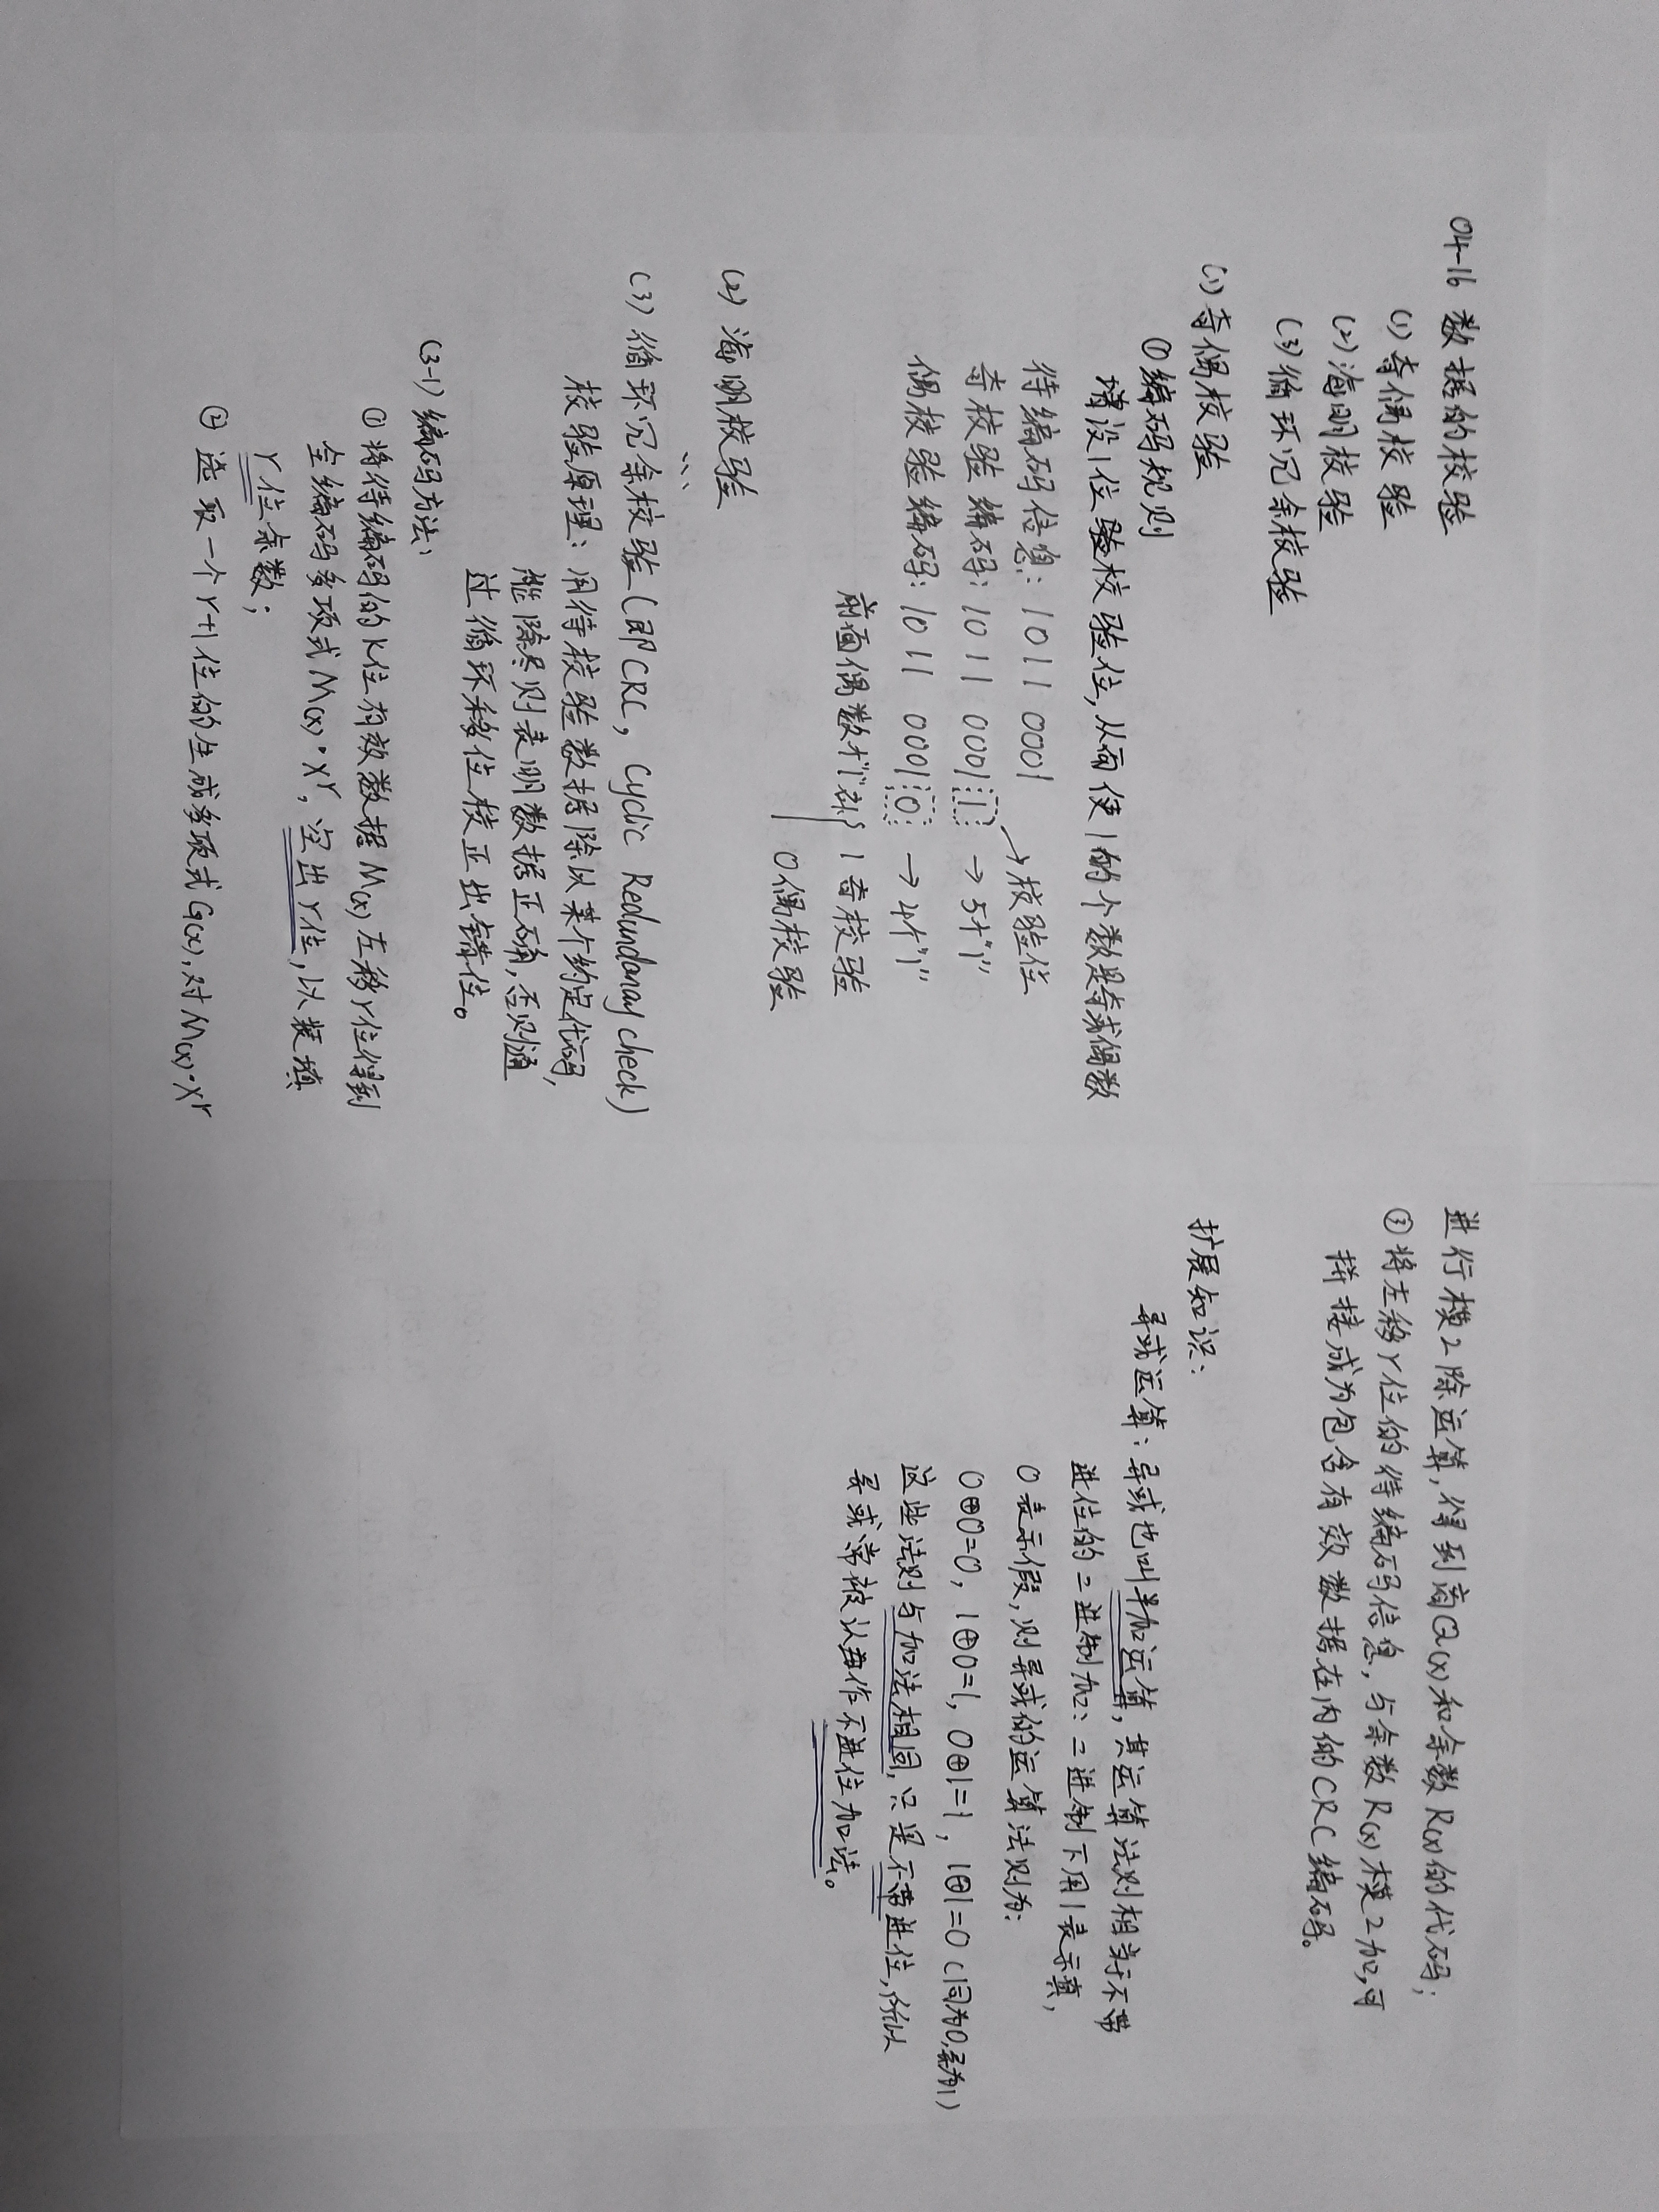 04-16 数据的校验
(1) 奇偶校验
(2) 海明校验
(3) 循环冗余校验
(1) 奇偶校验
① 编码规则
增设1位验校验位,从而使1的个数是奇或偶数
待编码信息: 1011 0001
→校验位
奇校验编码: 1011 0001 1 → 5个"1"
偶校验编码: 1011 0001 0 → 4个"1"
前面偶数个"1" 1 奇校验
0 偶校验
(2) 海明校验
...
(3) 循环冗余校验(即CRC, Cyclic Redundanay check)
校验原理: 用待校验数据除以某个约定代码,
能除尽则表明数据正确,否则通
过循环移位校正出错位。
(3-1) 编码方法:
① 将待编码的K位有效数据M(x)左移r位得到
全编码多项式M(x)·X^r, 空出r位,以装填
r位余数;
② 选取一个r+1位的生成多项式G(x),对M(x)·X^r
进行模2除运算,得到商Q(x)和余数R(x)的代码;
③ 将左移r位的待编码信息,与余数R(x)模2加,可
拼接成为包含有效数据在内的CRC编码。
扩展知识:
异或运算: 异或也叫半加运算,其运算法则相当于不带
进位的二进制加: 二进制下用1表示真,
0表示假,则异或的运算法则为:
0⊕0=0, 1⊕0=1, 0⊕1=1, 1⊕1=0 (同为0,异为1)
这些法则与加法相同,只是不带进位,所以
异或常被认作不进位加法。